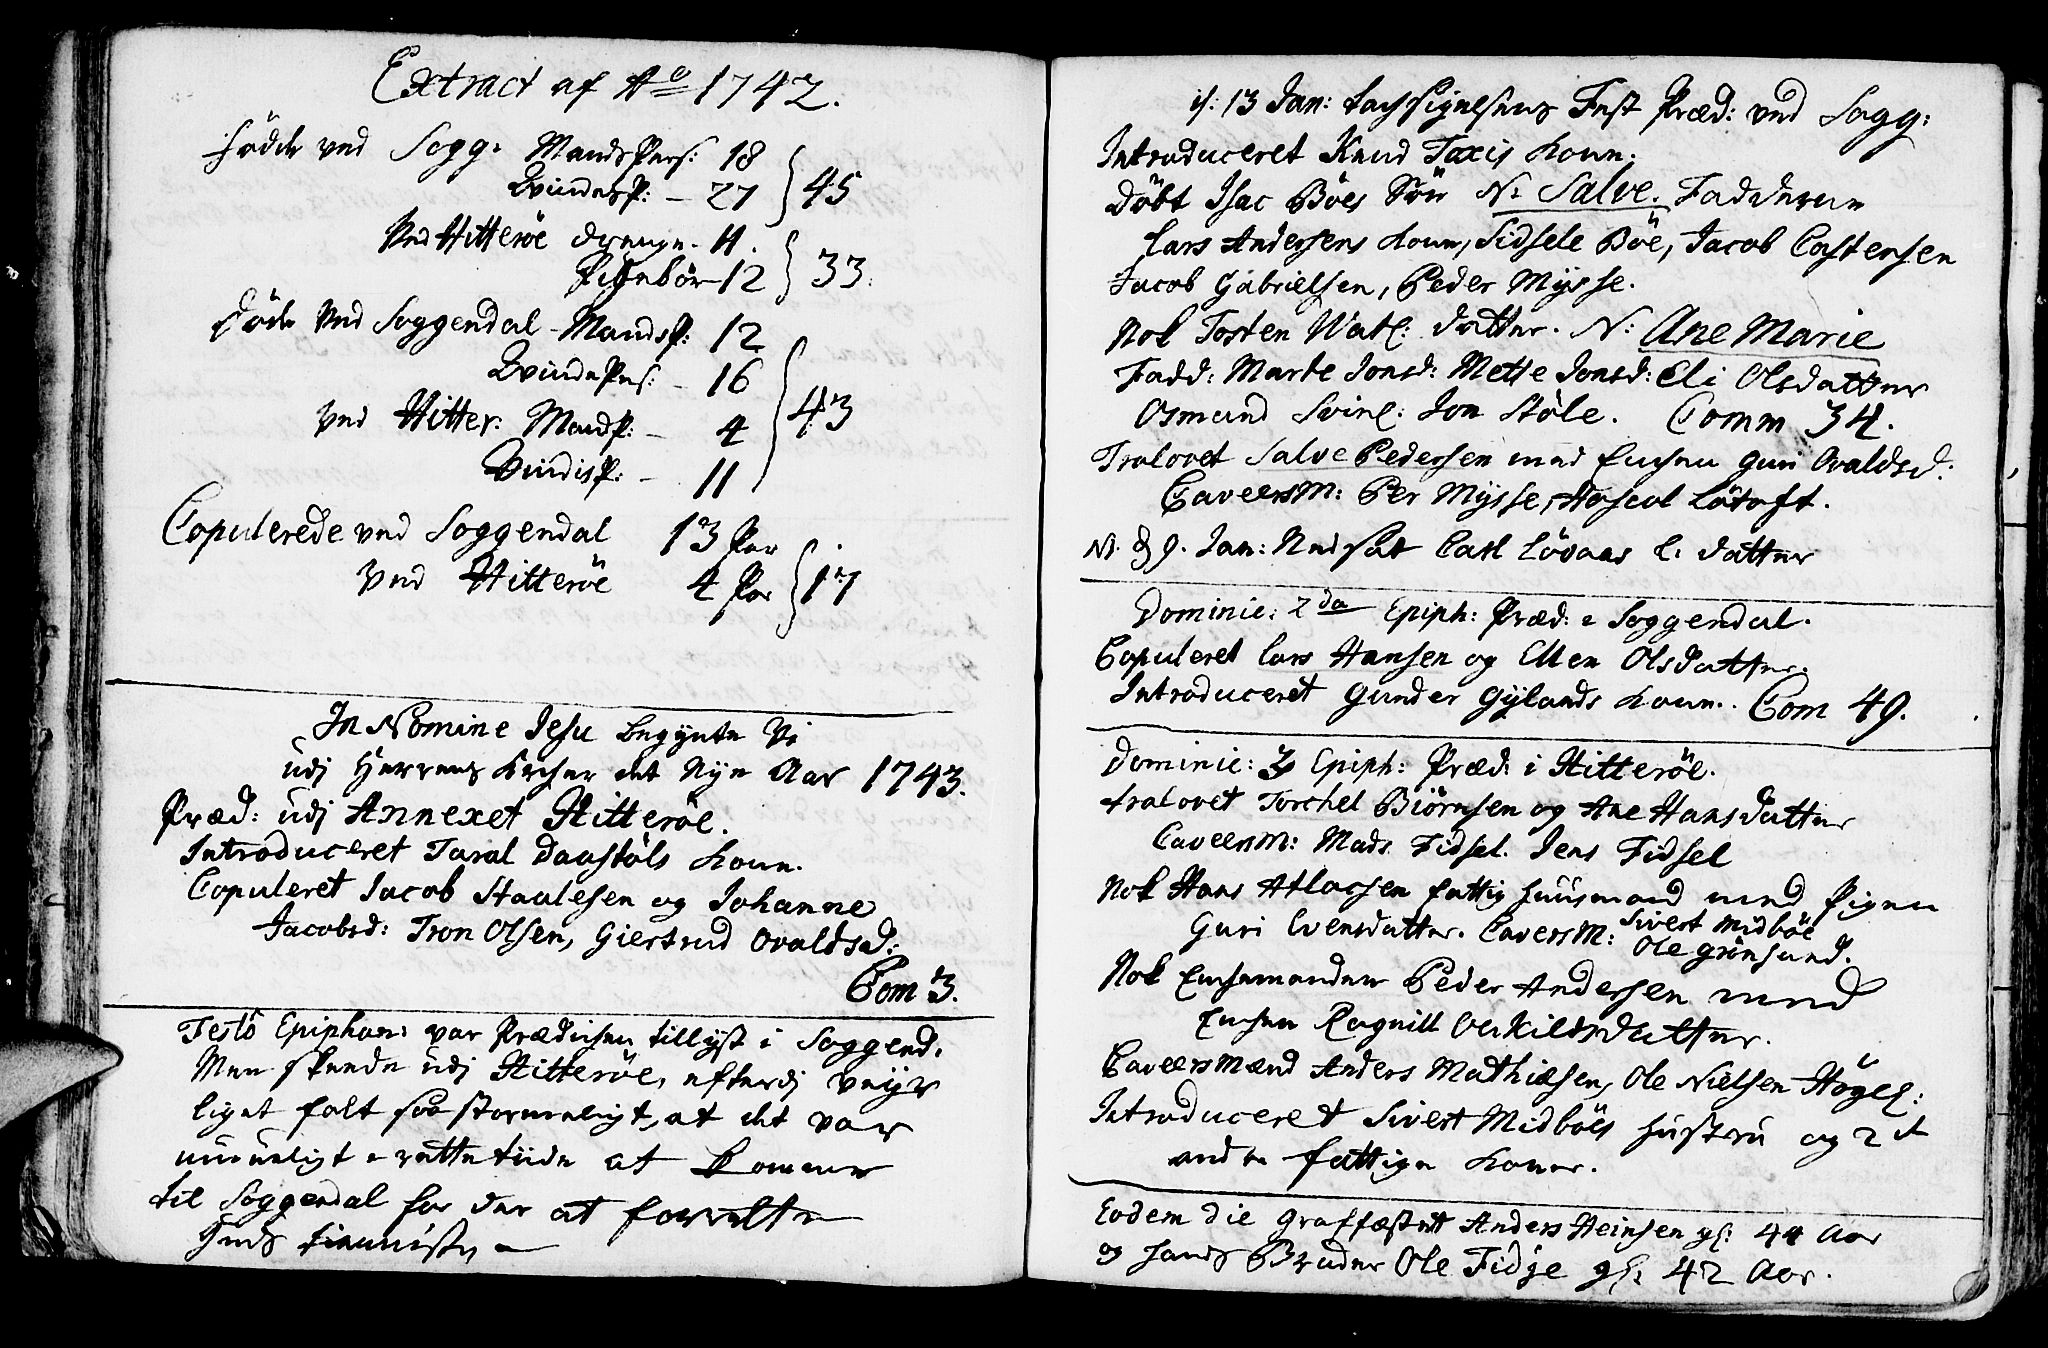 Extract af Aº 1742.
Födde ved Sogg: MandsPers: 18
Qvindesp: – 27 } 45
Ved Hitteröe drenge – 11.
Pigebör – 12 } 33:
Döde Ved Soggendal – MandsP: 12
QvindePers: – 16
ved Hitter: MandP: – 4 } 43
QvindisP: – 11
Copulerede ved Soggendal 13 Par
Ved Hitteröe 4 Par } 17
In Nomine Jesu begynte Vi
udj Herrens Kircher det Nye Aar 1743.
Præd: udj Annexet Hitteröe.
Introduceret Taral Daastöls Kone.
Copuleret Jacob Staalesen og Johanne
Jacobsd: Tron Olsen, Giertrud Ovaldsd:
Com 3.
Festo Epiphan: var Prædichen tillyst i Soggend.
Men skeede udj Hitteröe, efterdj veyr
liget falt saa stormeligt, at det var
umueligt i rette tiide at komme
til Soggendal for der at forrette
Guds tienniste,
is: 13 Jan: Tachsigelsens Fest Præd: ved Sogg:
Introduceret Knud Taxis Kone;
Döbt Isac Böes Sön N: Salve. Fadderne
Lars Andersens Kone, Sidsele Böe, Jacob Castensen
Jacob Gabrielsen, Peder Mysse.
Nok Tosten Watl: datter. N: Ane Marie
Fadd: Marte Jonsd: Mette Jonsd: Eli Olsdatter
Osmund Svinl: Jon Stöle. Comm 34.
Trolovet Salve Pedersen med Enchen Guri Ovaldsd:
CaveersM: Per Mysse, Aschol Lötoft.
N. d 9. Jan: Nedsat Carl Lövaas l: datter
Dominic: 2da Epiph: Præd: i Soggendal.
Copuleret Lars Hansen og Ellen Olsdatter.
Introduceret Gunder Gylands Kone. Com 49.
Dominic: 3 Epiph: Præd: i Hitteröe.
trolovet Torchel Biörnsen og Ane Hansdatter
CaveersM: Mads Fidsel. Jens Fidsel
Nok Hans Atlacsen fattig huusmand med Pigen
Guri Evensdatter. CaversM: Sivert Midböe
Ole Grönsund.
Nok Enchemanden Peder Andersen med
Enchen Ragnill Askildsdatter.
Caveersmænd Anders Mathiæsen, Ole Nielsen Högel:
Introduceret Sivert Midböes Hustru og 2de
andre fattige Koner.
Eodem die Graffæstet Anders Heinsen gl: 44 Aar
og hands Broder Ole Fidje gl: 42 Aar.